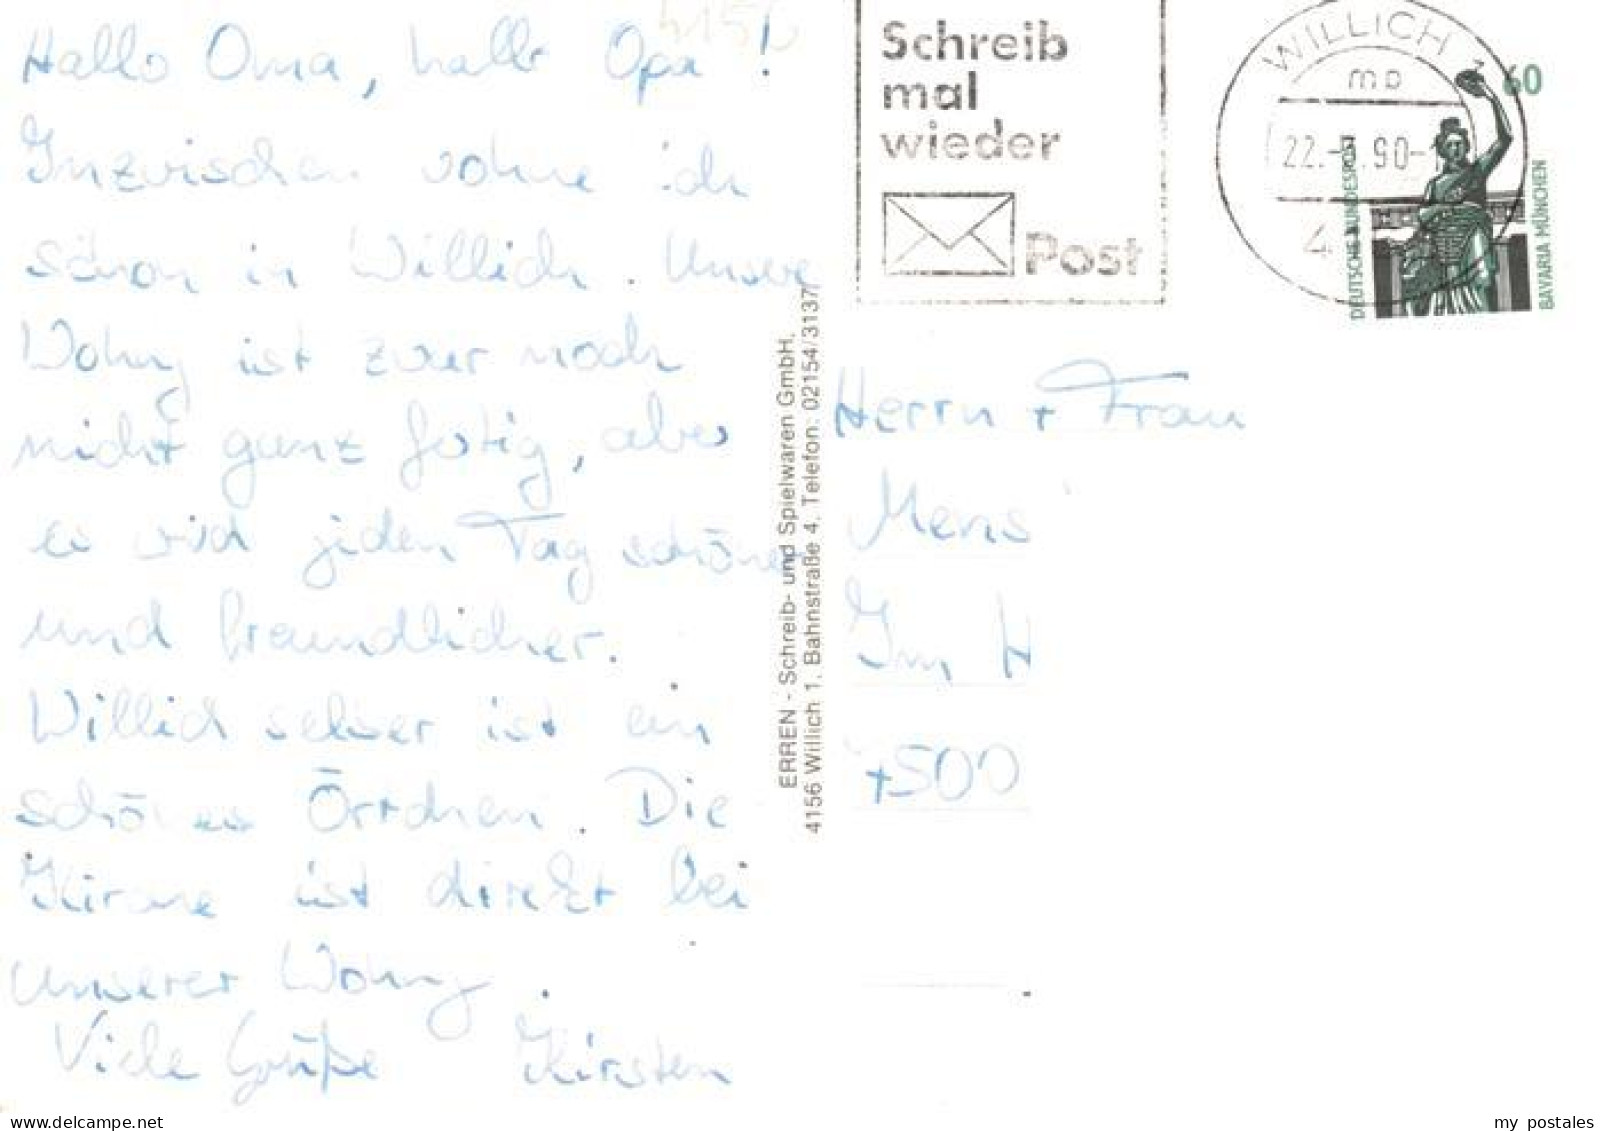 4156
Hallo Oma, hallo Opa!
Inzwischen wohne ich
schon in Willich. Unsere
Wohng ist zwar noch
nicht ganz fertig, aber
es wird jeden Tag schöner
und freundlicher.
Willich selber ist ein
schönes Örtchen. Die
Kirche ist direkt bei
unserer Wohng.
Viele Grüße Kirsten
ERREN - Schreib- und Spielwaren GmbH.
4156 Willich 1. Bahnstraße 4. Telefon: 02154/3137
Schreib
mal
wieder
Post
WILLICH 1
mb
22.-3.90-
4
60
DEUTSCHE BUNDESPOST
BAVARIA MÜNCHEN
Herrn + Frau
Mens
Im H
4500
delcampe.net
my_postales